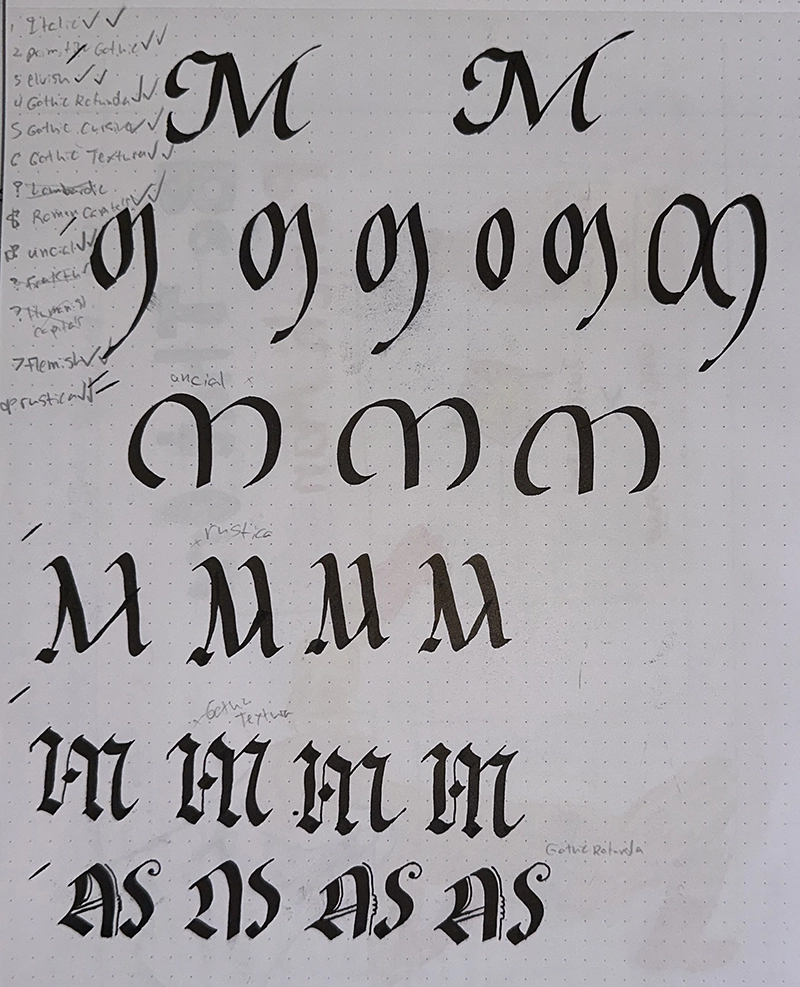 1 Italic
2 primitive Gothic
3 elvish
4 Gothic Rotunda
5 Gothic Cursive
6 Gothic Textura
? Lombardic
8 Roman Capitals
uncial
? Fraktur
? Humanist capitals
7 Flemish
rustica
M M
uncial
M M M
rustica
M M M M
Gothic Textura
M M M M
Gothic Rotunda